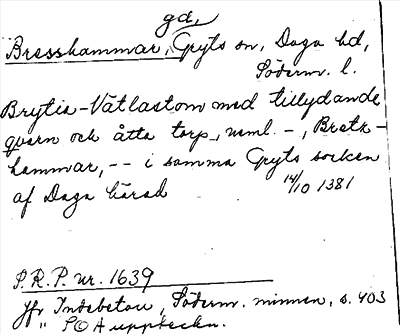 gd,
Bresshammar, Gryts sn, Daga hd,
Söderm. l.
Brytia-Vätlastom med tillydande
qvarn och åtta torp, neml. -, Bretz-
hammar, -- i samma Gryts socken
af Daga härad 14/10 1381
S.R.P. nr. 1639
Jfr Indebetou, Söderm. minnen, s. 403
" SOA uppteckn.